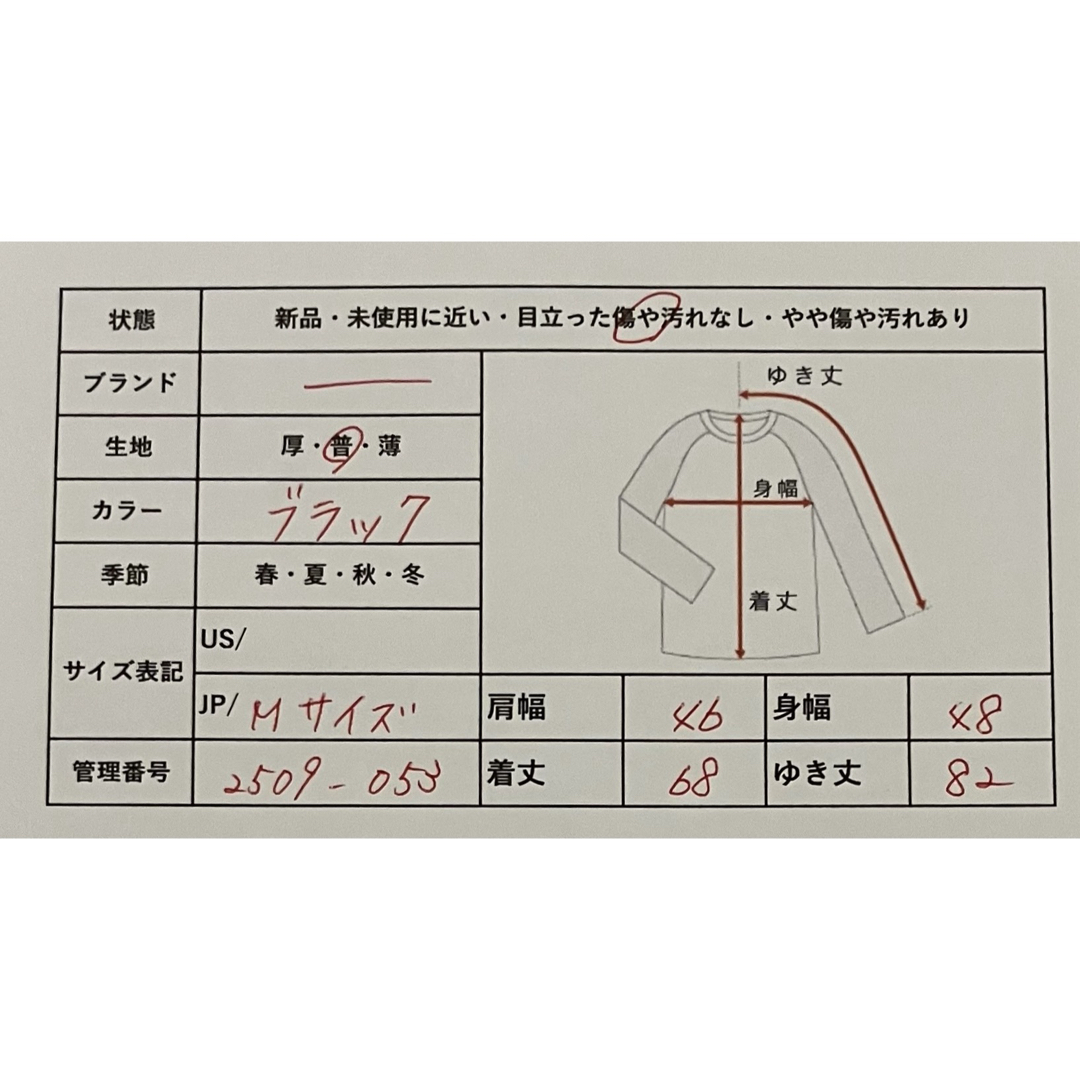 状態 新品・未使用に近い・目立った傷や汚れなし・やや傷や汚れあり
ブランド —
生地 厚・普・薄
カラー ブラック
季節 春・夏・秋・冬
サイズ表記 US/
JP/ Mサイズ
管理番号 2509-053
ゆき丈
身幅
着丈
肩幅 46 身幅 48
着丈 68 ゆき丈 82